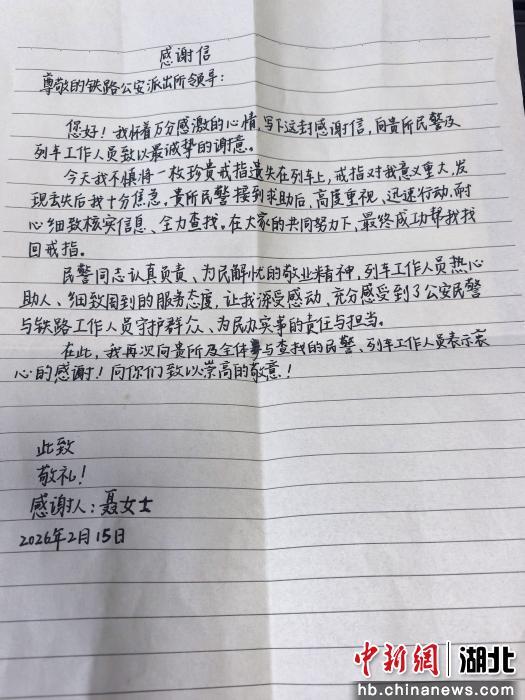 感谢信
尊敬的铁路公安派出所领导：
您好！我怀着万分感激的心情，写下这封感谢信，向贵所民警及
列车工作人员致以最诚挚的谢意。
今天我不慎将一枚珍贵戒指遗失在列车上，戒指对我意义重大，发
现丢失后我十分焦急，贵所民警接到求助后，高度重视，迅速行动，耐
心细致核实信息、全力查找。在大家的共同努力下，最终成功帮我找
回戒指。
民警同志认真负责、为民解忧的敬业精神，列车工作人员热心
助人、细致周到的服务态度，让我深受感动、充分感受到了公安民警
与铁路工作人员守护群众、为民办实事的责任与担当。
在此，我再次向贵所及全体参与查找的民警、列车工作人员表示衷
心的感谢！向你们致以崇高的敬意！
此致
敬礼！
感谢人：聂女士
2026年2月15日
中新网 湖北
hb.chinanews.com